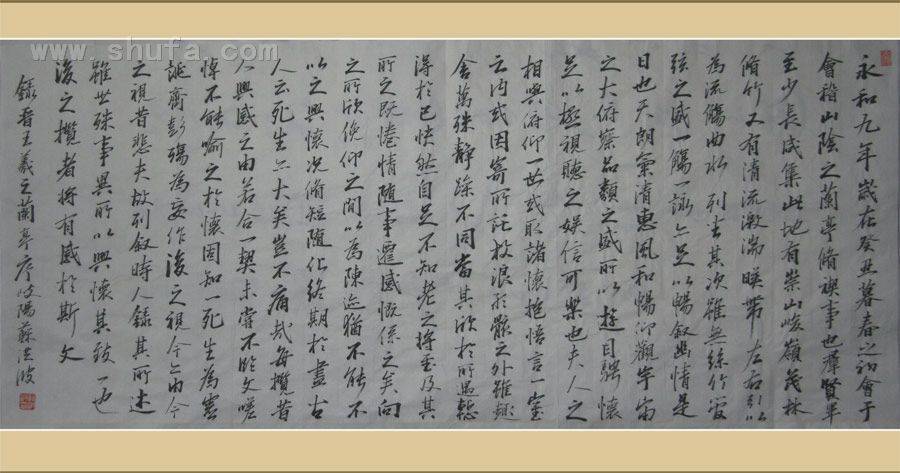 www.shufa.com
永和九年歲在癸丑暮春之初會于
會稽山陰之蘭亭脩禊事也羣賢畢
至少長咸集此地有崇山峻嶺茂林
脩竹又有清流激湍暎帶左右引以
為流觴曲水列坐其次雖無絲竹管
弦之盛一觴一詠亦足以暢敘幽情是
日也天朗氣清惠風和暢仰觀宇宙
之大俯察品類之盛所以遊目騁懷
足以極視聽之娛信可樂也夫人之
相與俯仰一世或取諸懷抱悟言一室
之內或因寄所託放浪形骸之外雖趣
舍萬殊靜躁不同當其欣於所遇暫
得於己快然自足不知老之將至及其
所之既惓情隨事遷感慨係之矣向
之所欣俛仰之間以為陳迹猶不能不
以之興懷況脩短隨化終期於盡古
人云死生亦大矣豈不痛哉每攬昔
人興感之由若合一契未嘗不臨文嗟
悼不能喻之於懷固知一死生為虛
誕齊彭殤為妄作後之視今亦由今
之視昔悲夫故列敘時人錄其所述
雖世殊事異所以興懷其致一也
後之攬者將有感於斯文
錄晉王羲之蘭亭序岐陽蘇洪波